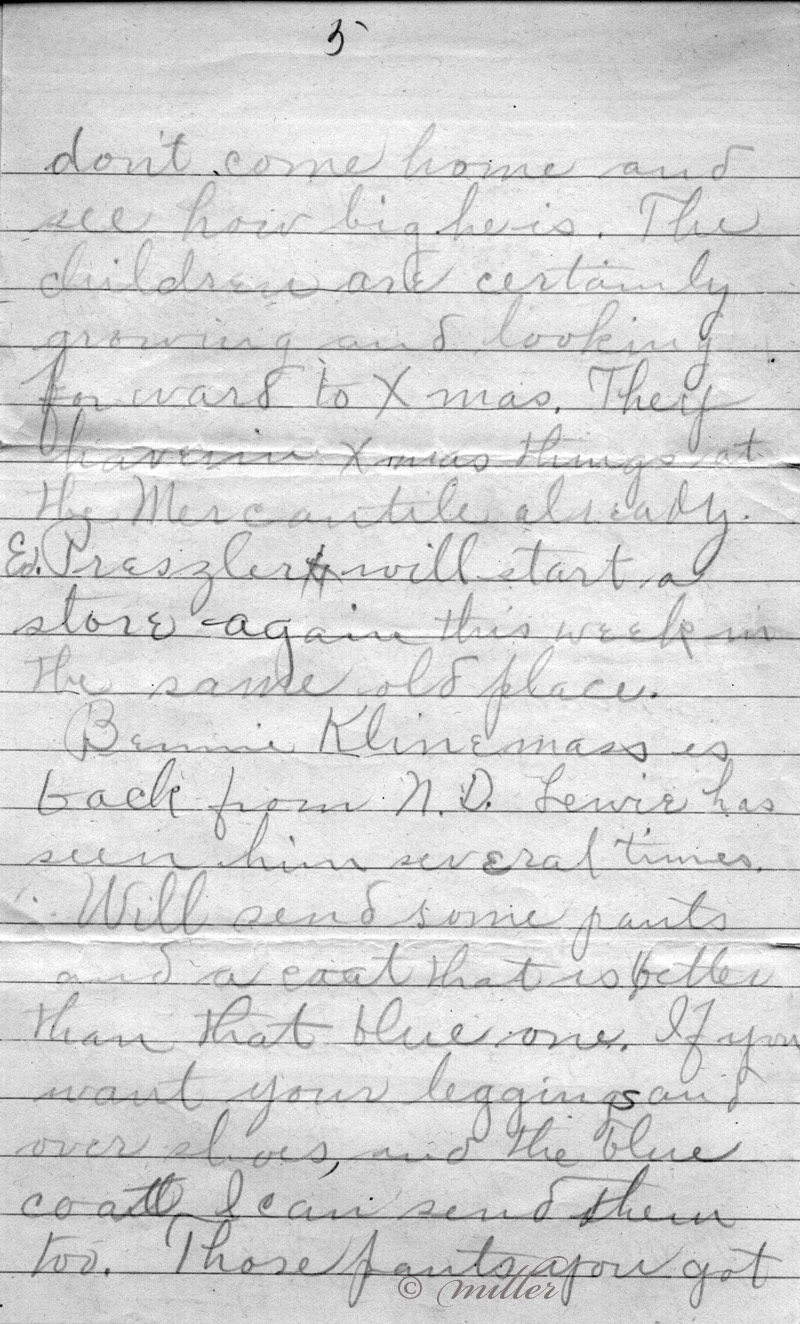 5
don't come home and
see how big he is. The
children are certainly
growing and looking
forward to Xmas. They
have in Xmas things at
the Mercantile already.
Ed. Preszler will start a
store again this week in
the same old place.
Bennie Klinemass is
back from N.D. Lewie has
seen him several times.
Will send some pants
and a coat that is better
than that blue one. If you
want your leggings and
over shoes, and the blue
coat I can send them
too. Those pants you got
© miller